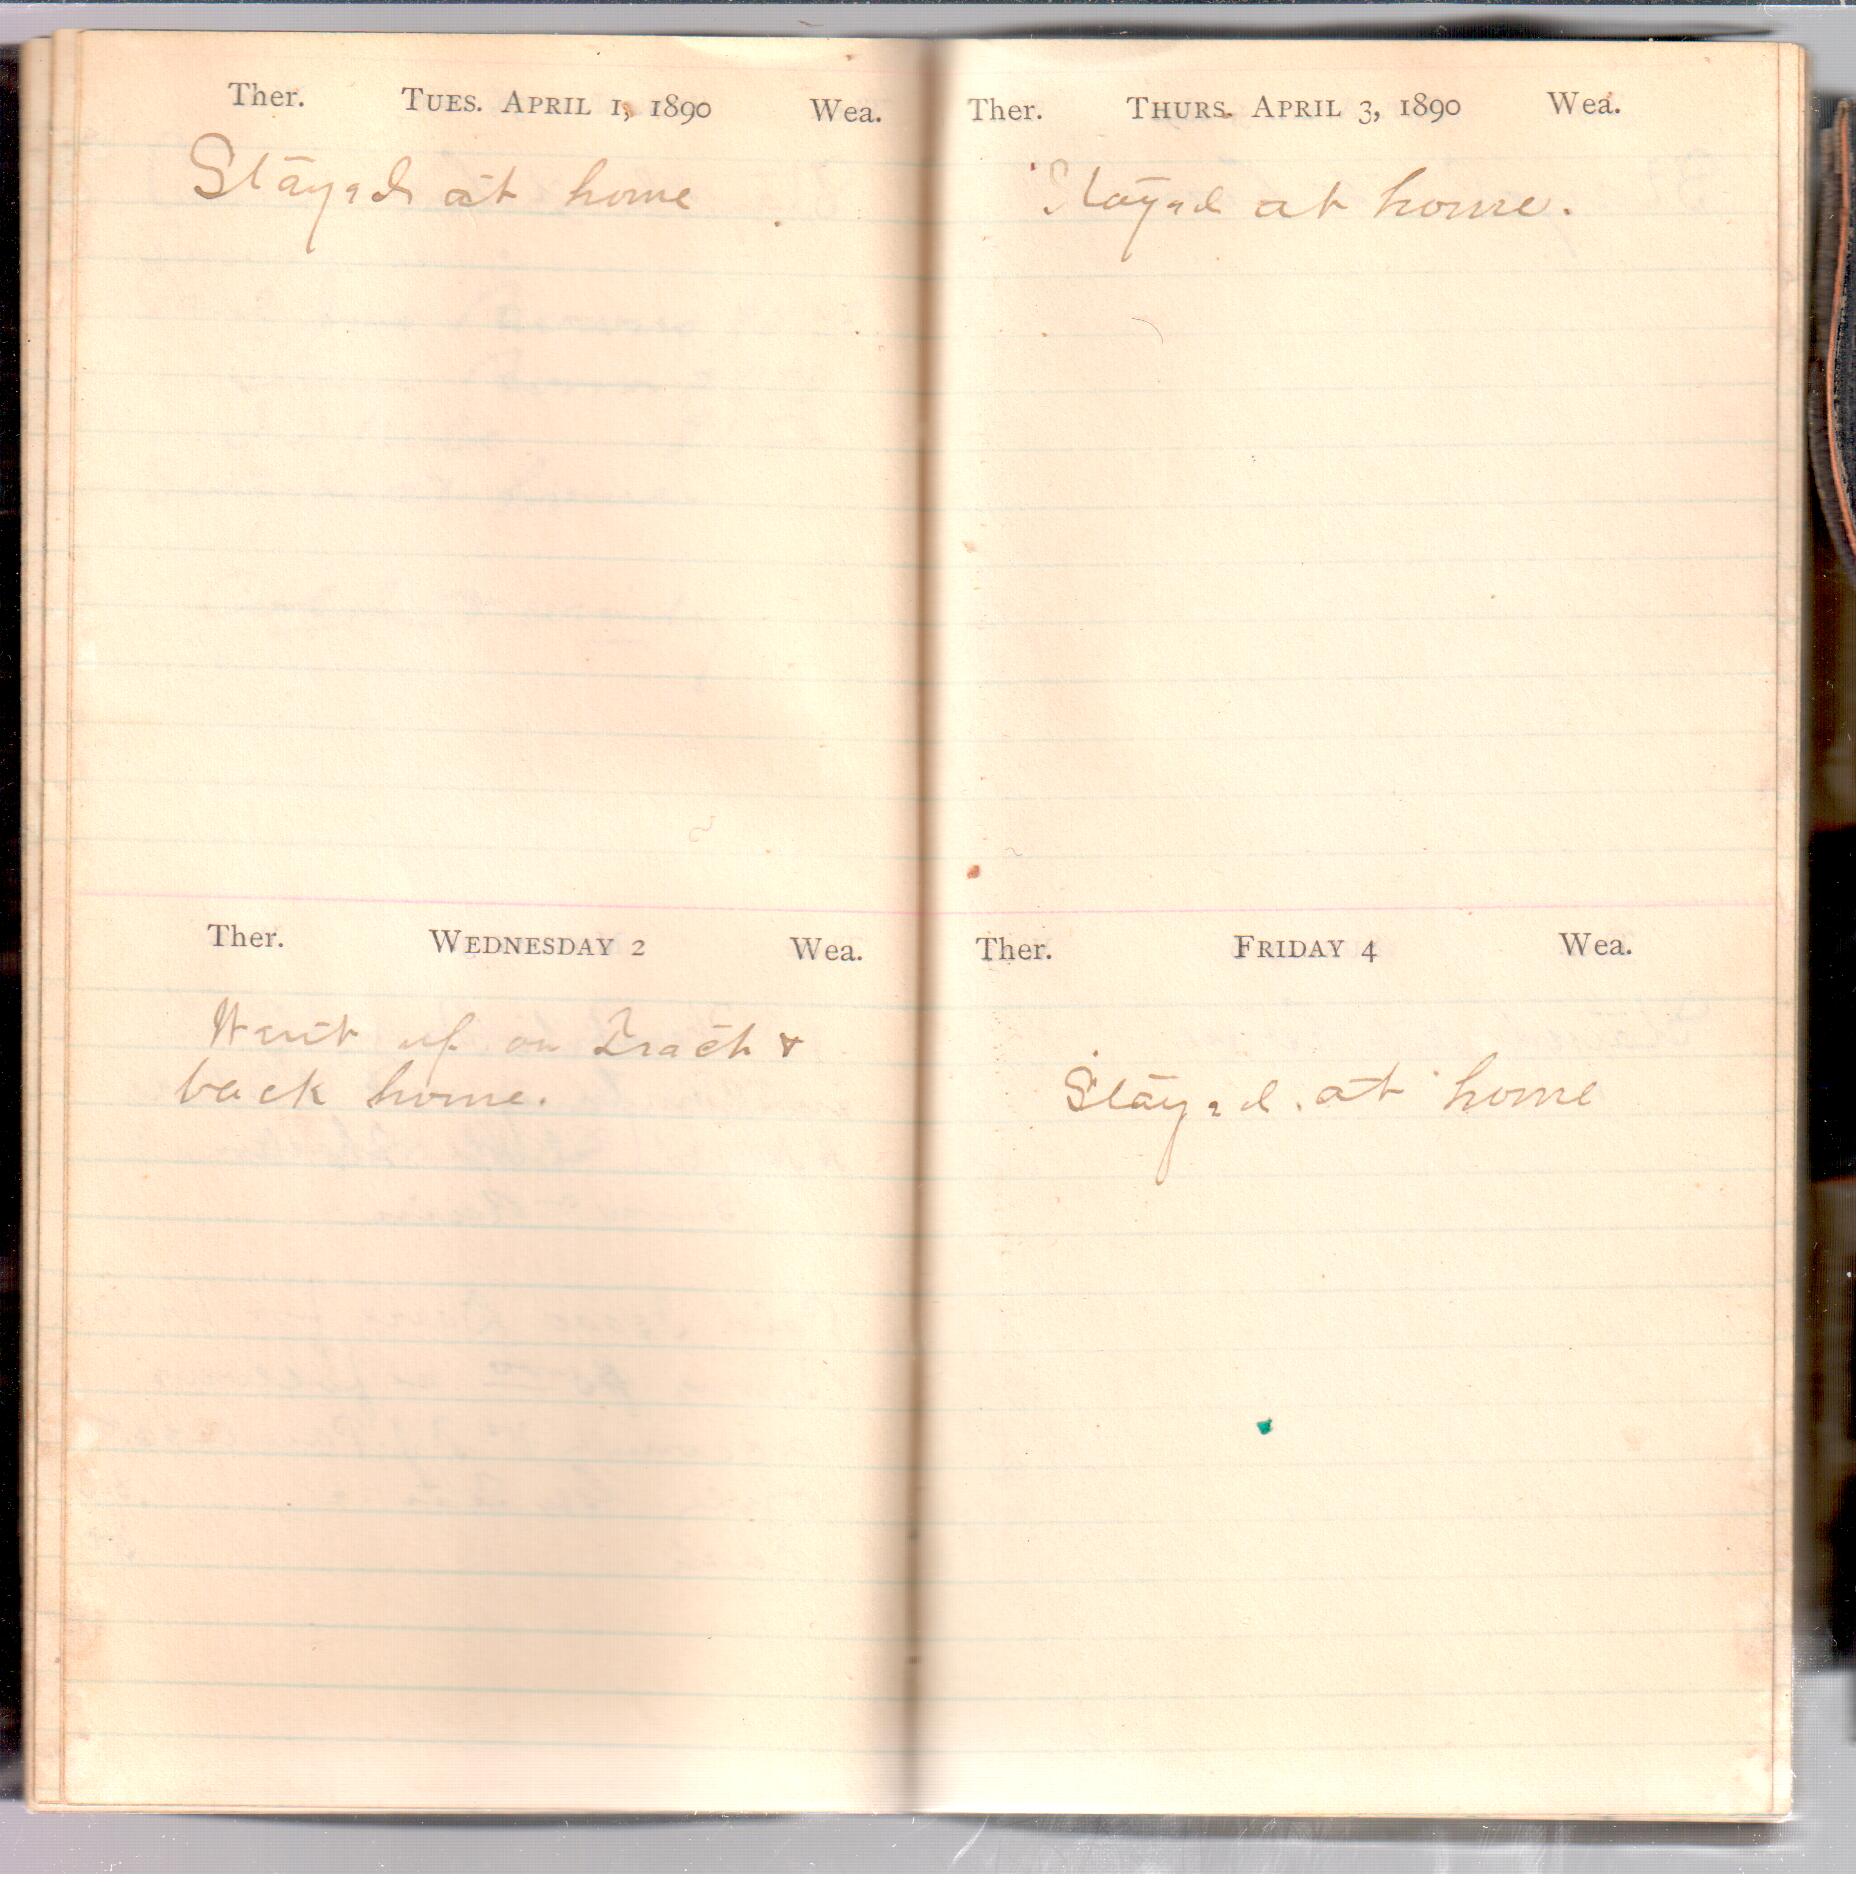 Ther. TUES. APRIL 1, 1890 Wea.
Stayed at home
Ther. WEDNESDAY 2 Wea.
Went up on Tract &
back home.
Ther. THURS. APRIL 3, 1890 Wea.
Stayed at home.
Ther. FRIDAY 4 Wea.
Stayed at home